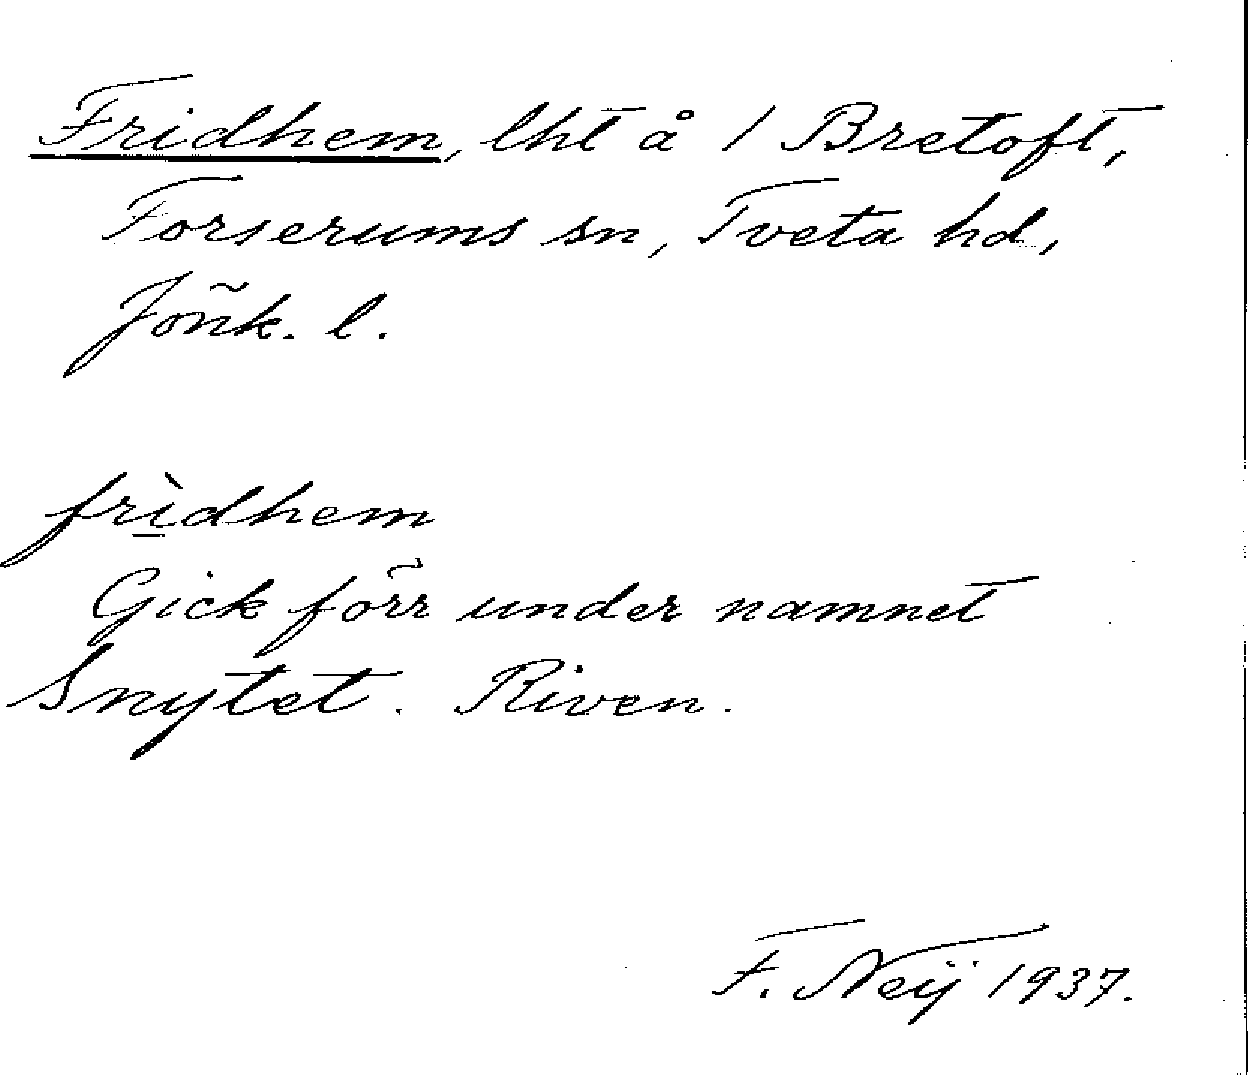 Fridhem, lht å 1 Bretoft,
Forserums sn, Tveta hd,
Jönk. l.
frìdhem
Gick förr under namnet
Snytet. Riven.
F. Neij 1937.